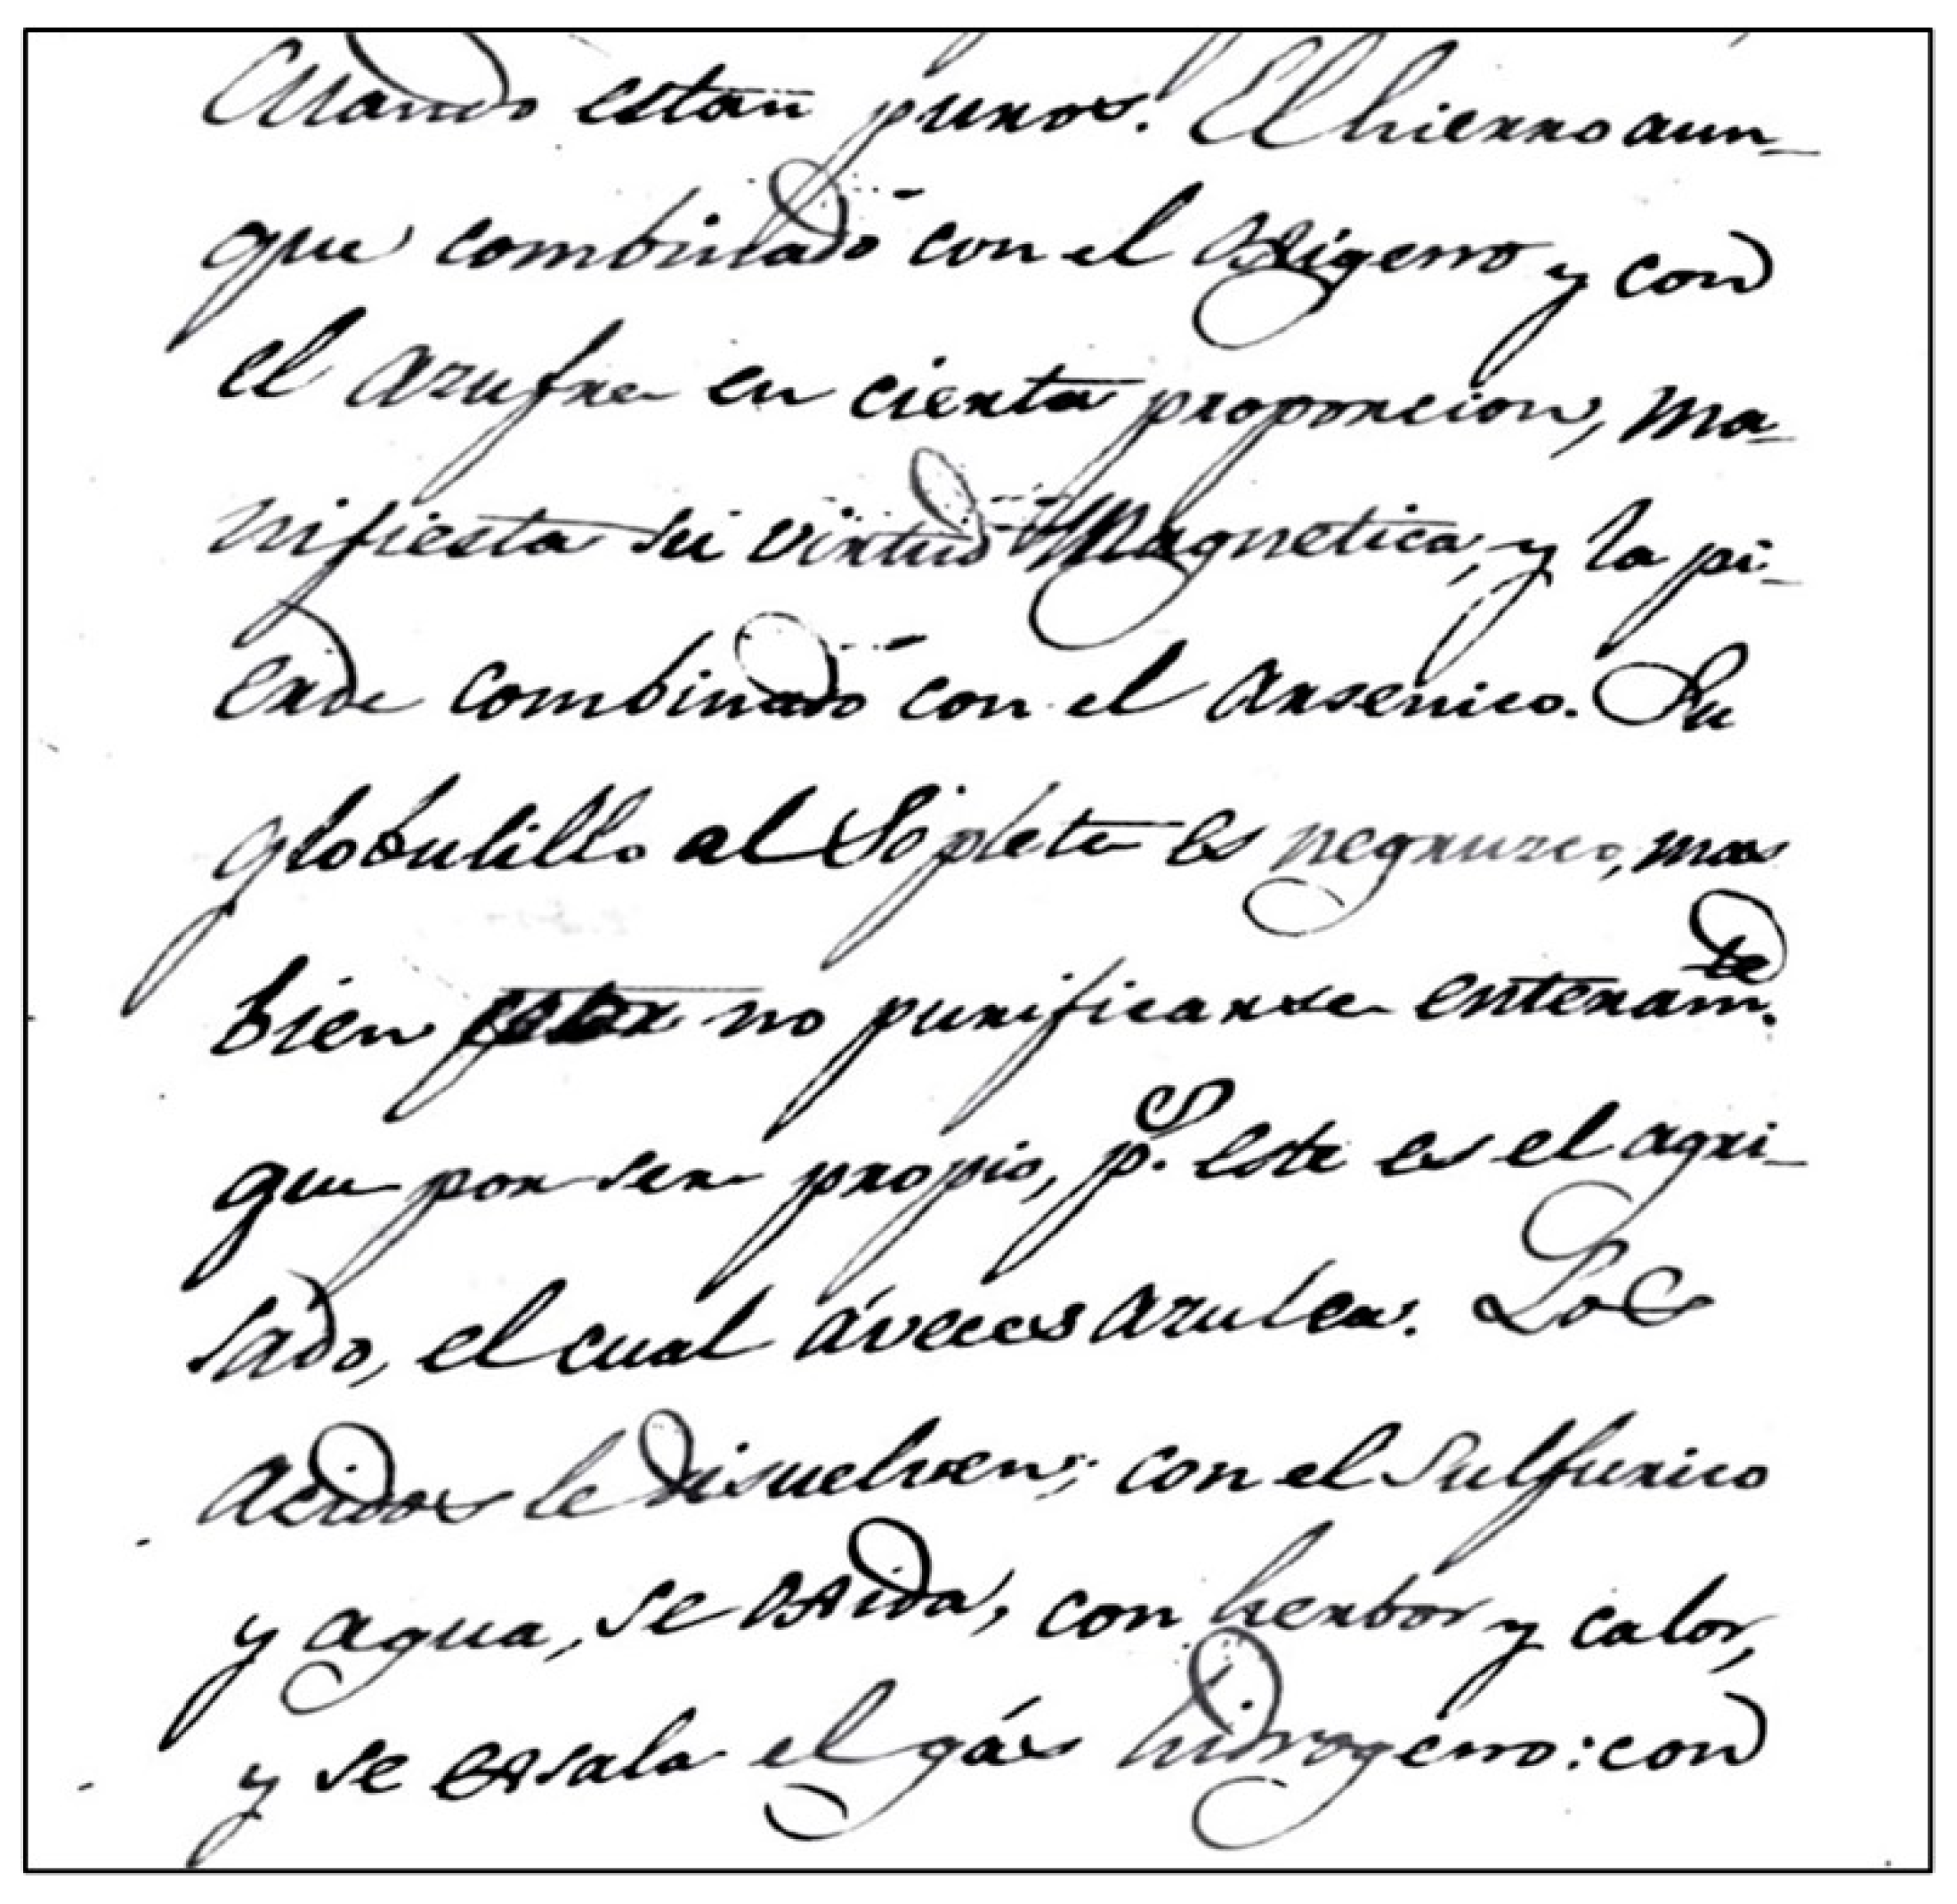 Cuando estan puros. El hierro aun-
que combinado con el oxígeno y con
el azufre en cierta proporcion, ma-
nifiesta su virtud Magnetica, y la pi-
erde combinado con el arsenico. Su
globulillo al Soplete es negruzco, mas
bien no purificarse enteram.te
que por ser propio, p.s este es el agri-
sado, el cual áveces azulea. Los
acidos le disuelven; con el Sulfurico
y agua, se oxida, con herbor y calor,
y se exsala el gás hidrogeno: con